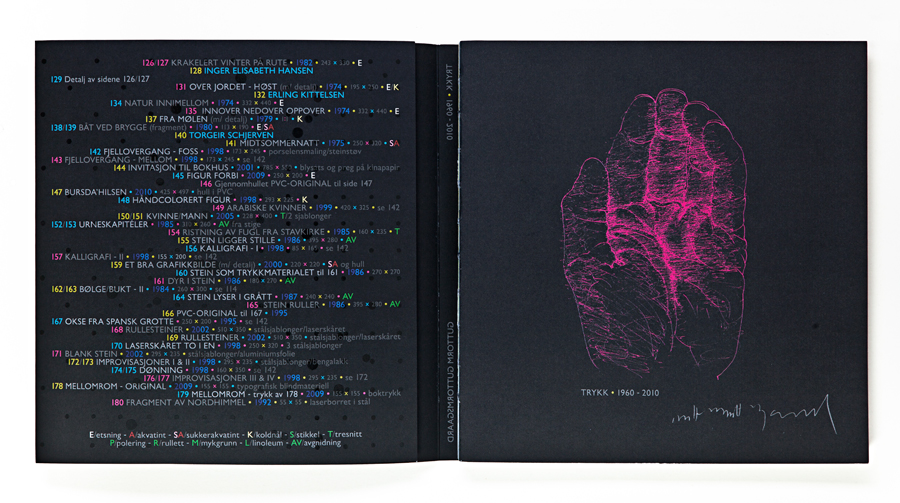 126/127 KRAKELERT VINTER PÅ RUTE • 1982 • 245 × 330 • E
128 INGER ELISABETH HANSEN
129 Detalj av sidene 126/127
131 OVER JORDET - HØST (m/ detalj) • 1974 • 195 × 250 • E/K
132 ERLING KITTELSEN
134 NATUR INNIMELLOM • 1974 • 333 × 440 • E
135 INNOVER NEDOVER OPPOVER • 1974 • 333 × 440 • E
137 FRA MØLEN (m/ detalj) • 1979 • K
138/139 BÅT VED BRYGGE (fragment) • 1980 • 133 × 190 • E/SA
140 TORGEIR SCHJERVEN
141 MIDTSOMMERNATT • 1975 • 250 × 320 • SA
142 FJELLOVERGANG - FOSS • 1998 • 173 × 245 • porselensmaling/steintøy
143 FJELLOVERGANG - MELLOM • 1998 • 173 × 245 • se 142
144 INVITASJON TIL BOKHUS • 2001 • blysats og preg på kinapapir
145 FIGUR FORBI • 2009 • 250 × 200 • E
146 Gjennomhullet PVC-ORIGINAL til side 147
147 BURSDA'HILSEN • 2010 • 425 × 497 • hull i PVC
148 HÅNDCOLORERT FIGUR • 1998 • 293 × 225 • K
149 ARABISKE KVINNER • 1999 • 420 × 325 • se 142
150/151 KVINNE/MANN • 2005 • 228 × 400 • T/2 sjablonger
152/153 URNESKAPITÉLER • 1985 • 310 × 260 • AV fra stige
154 RISTNING AV FUGL FRA STAVKIRKE • 1985 • 160 × 235 • T
155 STEIN LIGGER STILLE • 1986 • 395 × 280 • AV
156 KALLIGRAFI - I • 1998 • 85 × 165 • se 142
157 KALLIGRAFI - II • 1998 • 155 × 200 • se 142
159 ET BRA GRAFIKKBILDE (m/ detalj) • 2000 • 220 × 220 • SA og hull
160 STEIN SOM TRYKKMATERIALET til 161 • 1986 • 270 × 270
161 DYR I STEIN • 1986 • 180 × 270 • AV
162/163 BØLGE/BUKT - II • 1984 • 260 × 300 • se 114
164 STEIN LYSER I GRÅTT • 1987 • 240 × 240 • AV
165 STEIN RULLER • 1986 • 395 × 280 • AV
166 PVC-ORIGINAL til 167 • 1995
167 OKSE FRA SPANSK GROTTE • 250 × 200 • 1995 • se 142
168 RULLESTEINER • 2002 • 510 × 350 • stålsjablonger/laserskåret
169 RULLESTEINER • 2002 • 510 × 350 • stålsjablonger/laserskåret
170 LASERSKÅRET TO I EN • 1998 • 250 × 320 • 3 stålsjablonger
171 BLANK STEIN • 2002 • 295 × 235 • stålsjablonger/aluminiumsfolie
172/173 IMPROVISASJONER I & II • 1998 • 295 × 235 • stålsjablonger/sengalakk
174/175 DØNNING • 1998 • 160 × 350 • se 142
176/177 IMPROVISASJONER III & IV • 1998 • 295 × 235 • se 172
178 MELLOMROM - ORIGINAL • 2009 • 155 × 155 • typografisk blindmateriell
179 MELLOMROM - trykk av 178 • 2009 • 155 × 155 • boktrykk
180 FRAGMENT AV NORDHIMMEL • 1992 • 55 × 55 • laserborret i stål
E/etsning - A/akvatint - SA/sukkerakvatint - K/koldnål - S/stikkel - T/tresnitt
P/polering - R/rullett - M/mykgrunn - L/linoleum - AV/avgnidning
TRYKK • 1960 - 2010
GUTTORM GUTTORMSGAARD
TRYKK • 1960 - 2010